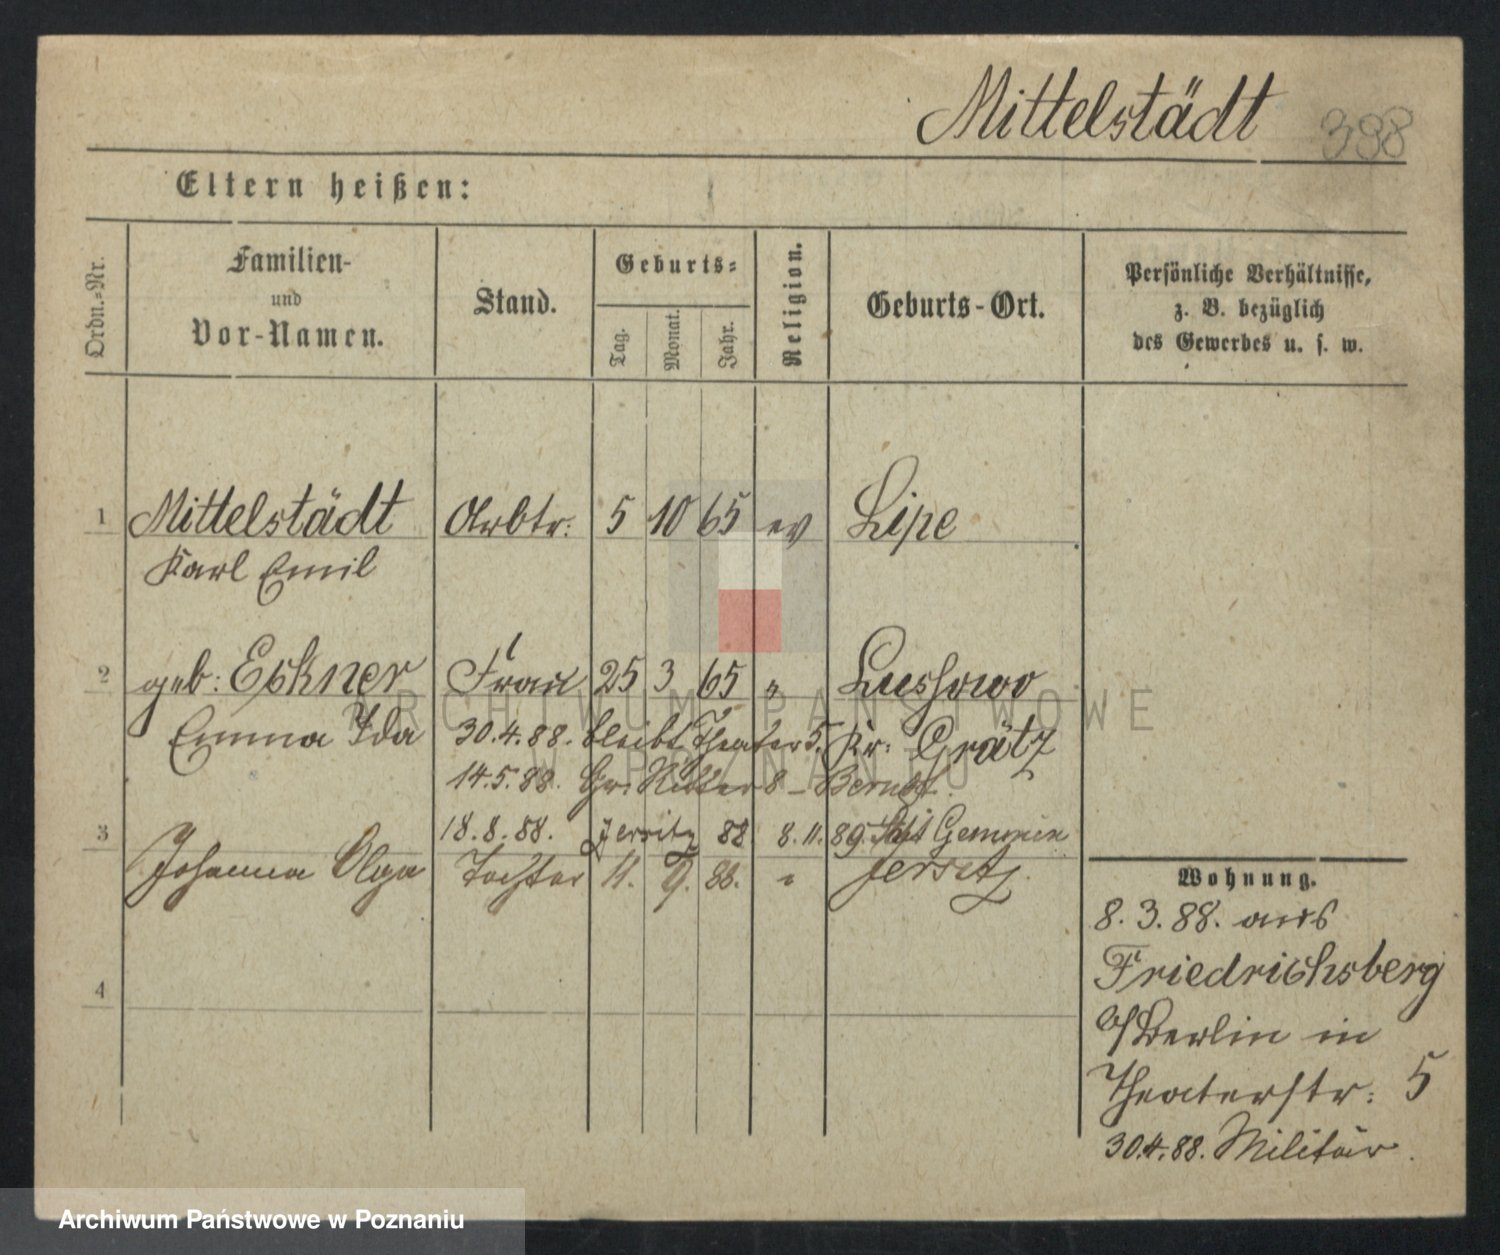 Mittelstädt 398
Eltern heißen:
Ordn.-Nr.
Familien-
und
Vor-Namen.
Stand.
Geburts-
Tag.
Monat.
Jahr.
Religion.
Geburts-Ort.
Persönliche Verhältnisse,
z. B. bezüglich
des Gewerbes u. s. w.
1 Mittelstädt Arbtr. 5 10 65 ev Lipe
Karl Emil
2 geb: Eckner Frau 25 3 65 " Lussowo
Emma Ida 30.4.88. bleibt Theater 5. Kr: Grätz
14.5.88. Gr. Ritter 8
3 18.8.88. Jersitz 88 8.11.89.
Johanna Olga Tochter 11. 9. 88. " Jersitz.
4
Wohnung.
8.3.88. aus
Friedrichsberg
b/Berlin in
Theaterstr: 5
30.4.88. Militär.
ARCHIWUM PAŃSTWOWE
W POZNANIU
Archiwum Państwowe w Poznaniu